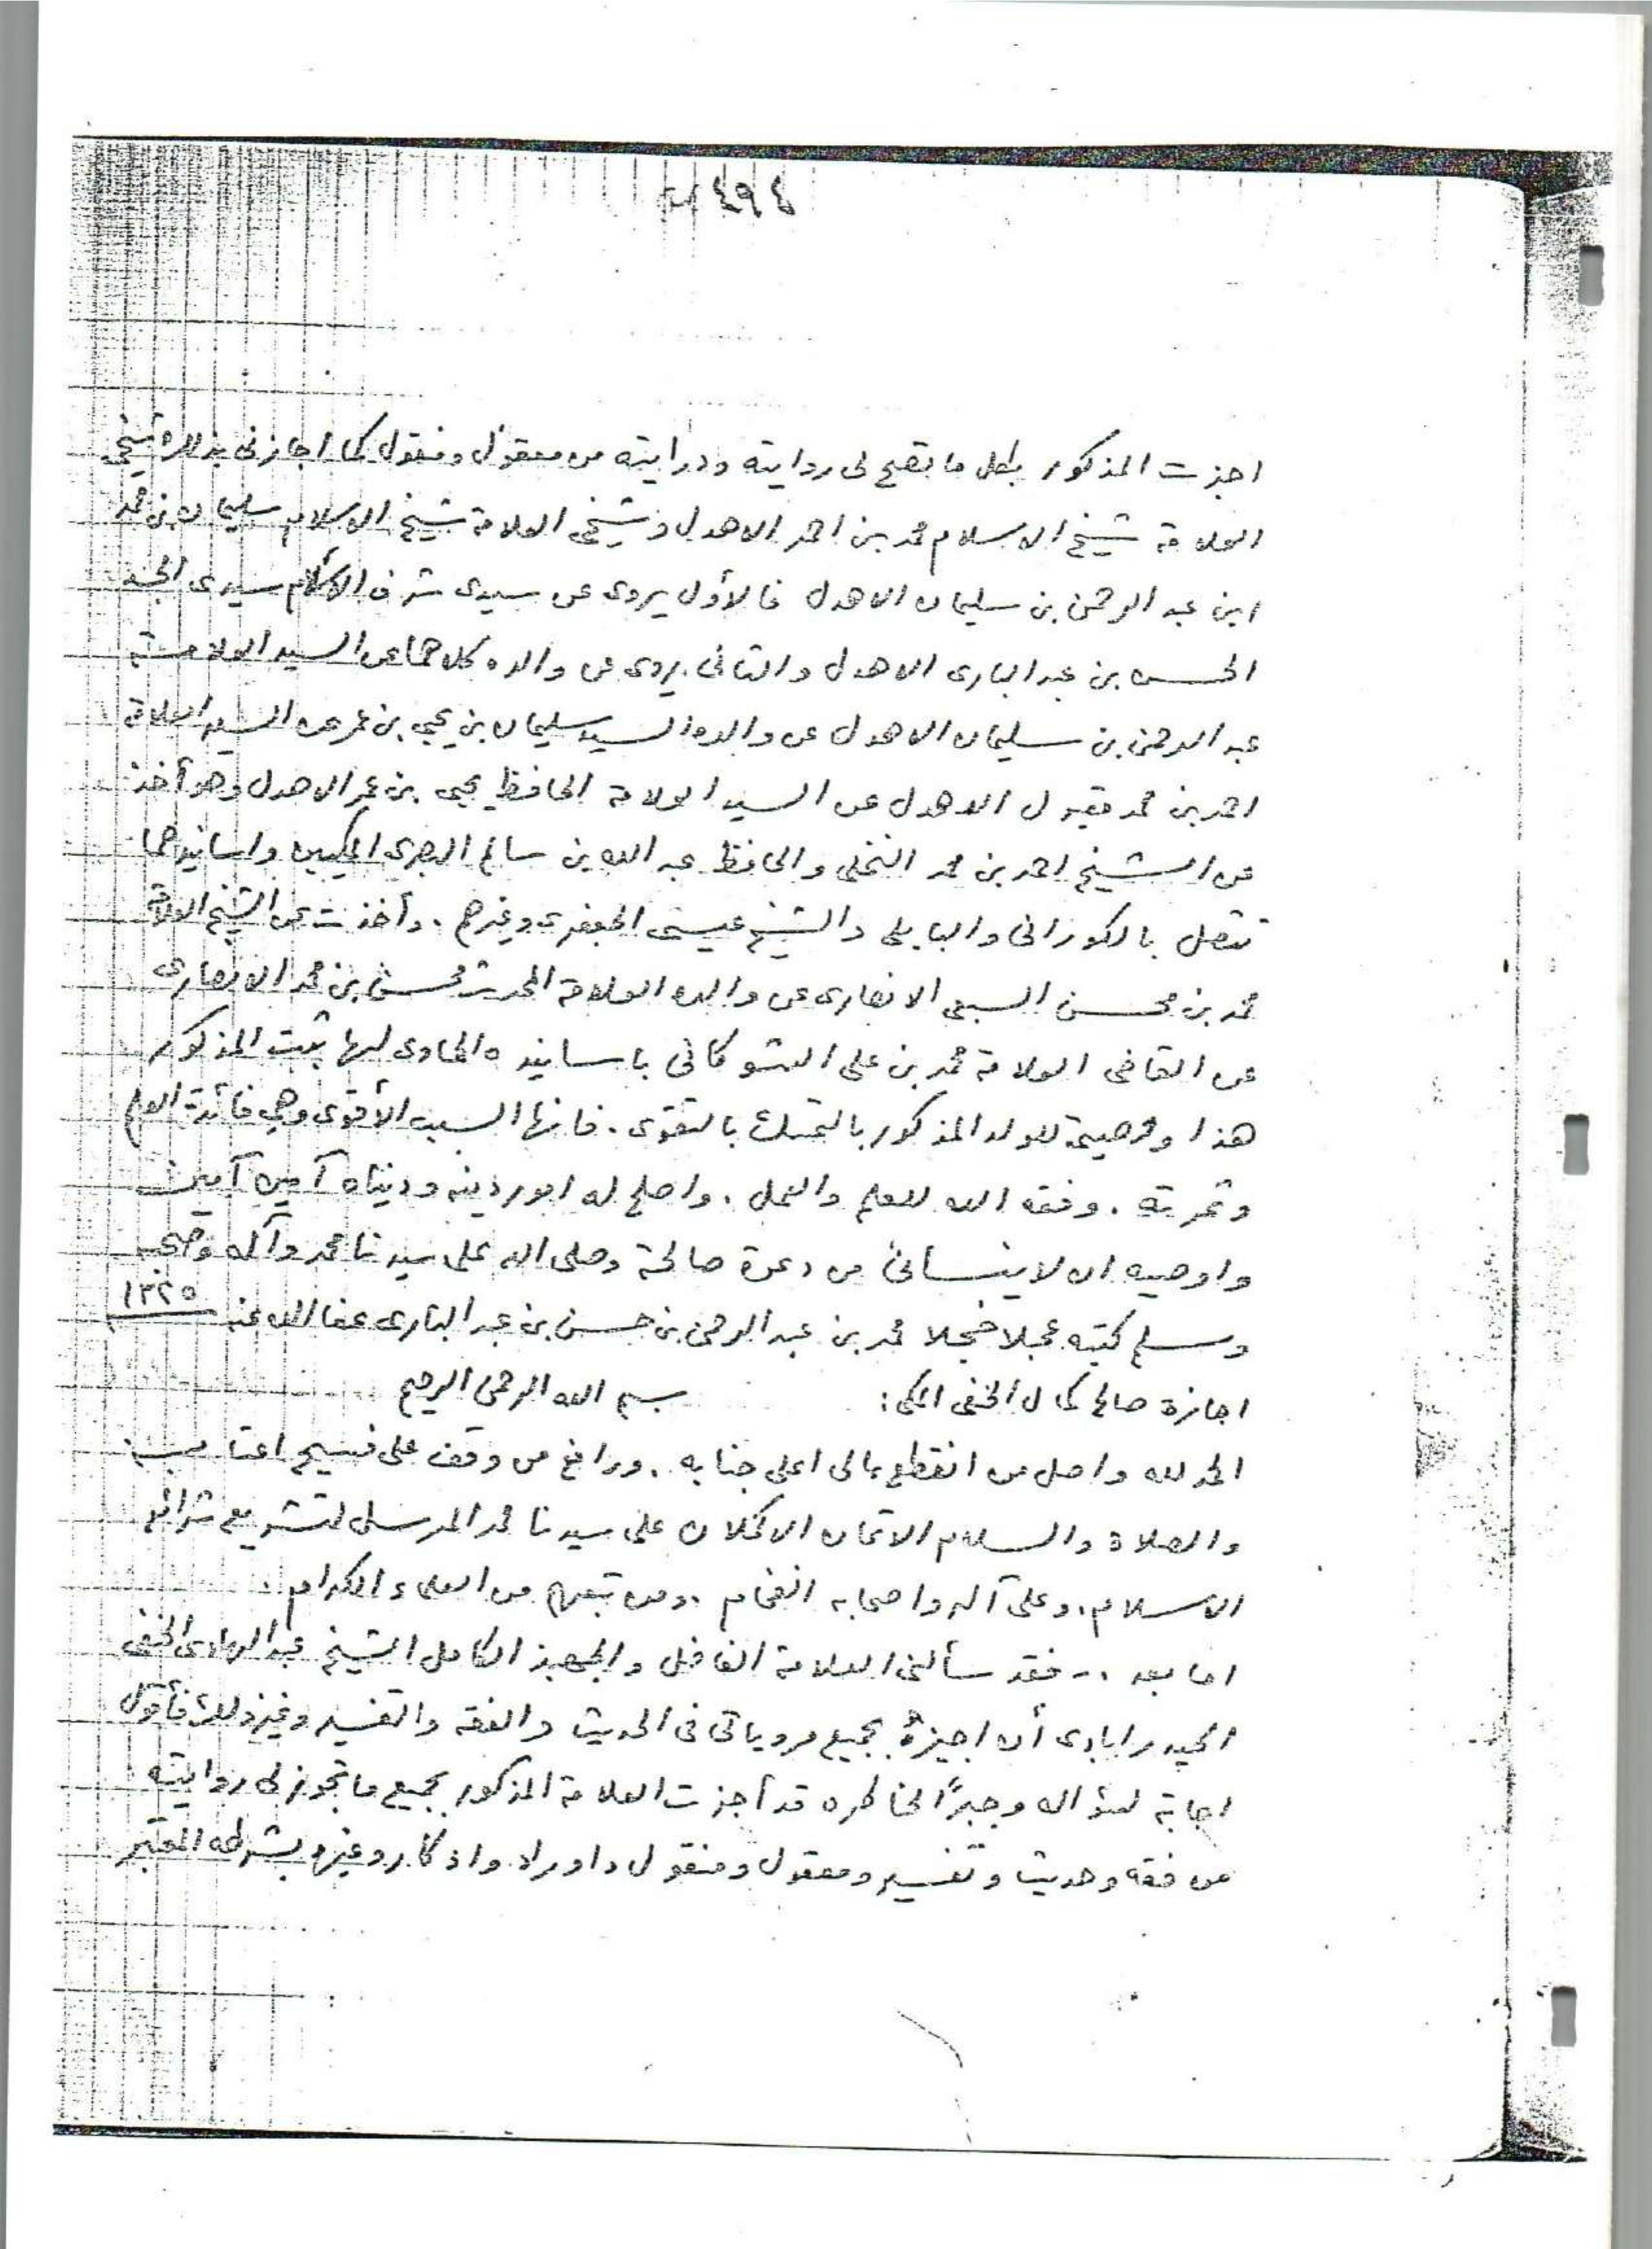 ٤٩٤
اجزت المذكور بكل ما تصح لى روايته ودرايته من معقول ومنقول كما اجازنى بذلك شيخى
العلامة شيخ الاسلام محمد بن احمد الاهدل وشيخى العلامة شيخ الاسلام سليمان بن محمد
ابن عبد الرحمن بن سليمان الاهدل فالأول يروى عن سيدى شرف الاسلام سيدى الجد
الحسن بن عبد البارى الاهدل والثانى يروى عن والده كلاهما عن السيد العلامة
عبد الرحمن بن سليمان الاهدل عن والده السيد سليمان بن يحيى بن عمر عن السيد العلامة
احمد بن محمد مقبول الاهدل عن السيد العلامة الحافظ يحيى بن عمر الاهدل وهو أخذ
عن الشيخ احمد بن محمد النخلى والحافظ عبد الله بن سالم البصرى المكيين واسانيدهما
تتصل بالكورانى والبابلى والشيخ عيسى الجعفرى وغيرهم . وأخذت عن الشيخ العلامة
محمد بن محسن السبعى الانصارى عن والده العلامة المحدث محسن بن محمد الانصارى
عن القاضى العلامة محمد بن على الشوكانى باسانيده الحاوى لها ثبت المذكور
هذا ووصيتى للولد المذكور بالتمسك بالتقوى . فانها السبب الأقوى وهي فائدة العلم
وثمرته . وفقه الله للعلم والعمل . واصلح له امور دينه ودنياه آمين آمين
واوصيه ان لا ينسانى من دعوة صالحة وصلى الله على سيدنا محمد وآله وصحبه
وسلم كتبه عجلا خجلا محمد بن عبد الرحمن بن حسن بن عبد البارى عفا الله عنه ١٣٢٥
اجازة صالح كمال الحنفى المكى : بسم الله الرحمن الرحيم
الحمد لله واصل من انقطع الى اعلى جنابه . ورافع من وقف على فسيح اعتابه
والصلاة والسلام الاتمان الاكملان على سيدنا محمد المرسل لتشريع شرائع
الاسلام . وعلى آله واصحابه الفخام . ومن تبعهم من العلماء الكرام .
اما بعد .. فقد سألنى العلامة الفاضل والجهبذ الكامل الشيخ عبد الهادى الحنفى
الحيدرابادى أن اجيزه بجميع مروياتى فى الحديث والفقه والتفسير وغير ذلك فأقول
اجابة لسؤاله وجبرًا لخاطره قد أجزت العلامة المذكور بجميع ما تجوز لى روايته
من فقه وحديث وتفسير ومعقول ومنقول واوراد واذكار وغيره بشرطه المعتبر